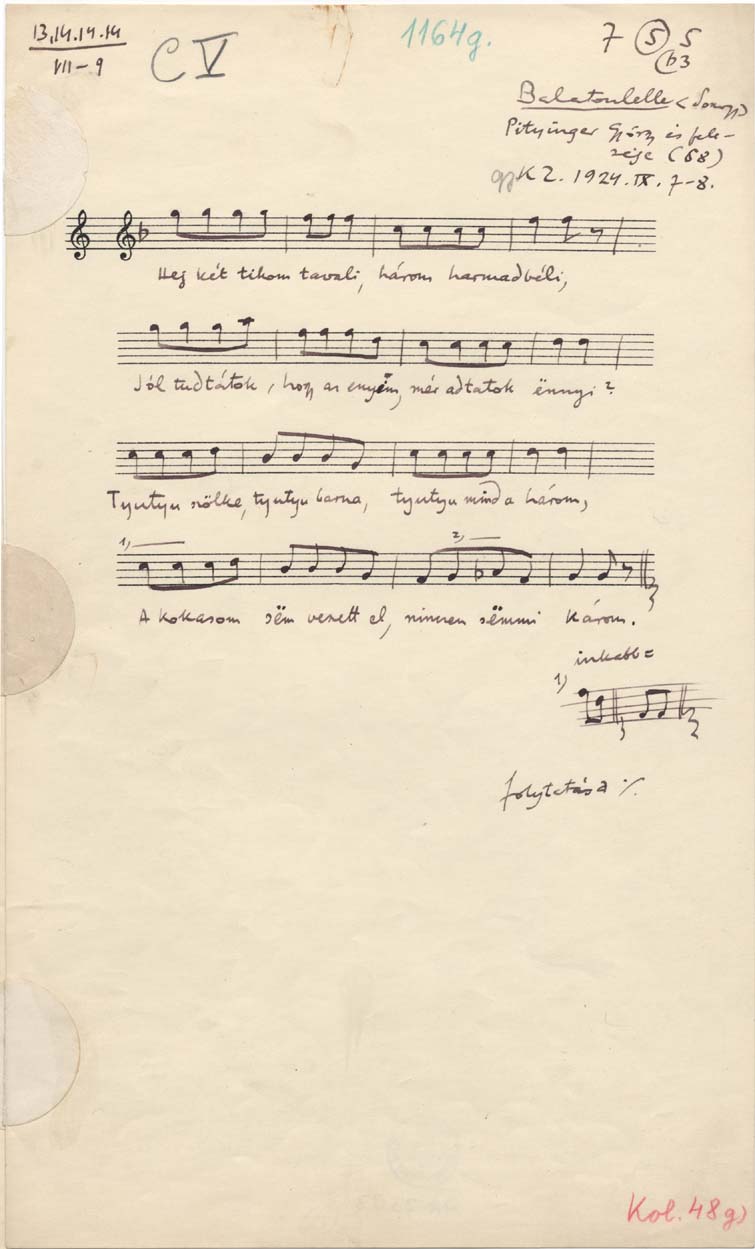 13,14.14.14
VII – 9
C V
1164g.
7 (5) 5
(b3
Balatonlelle (Somogy)
Pityinger György és fele-
sége (68)
gy K Z. 1924. IX. 7–8.
Meg két tikom tavali, három harmadbéli,
Jól tudtátok, hogy az enyém, mér adtatok ënnyi?
Tyutyu szölke, tyutyu barna, tyutyu mind a három,
1)
2)
A kokasom sëm veszett el, nincsen sëmmi károm.
inkább =
1)
folytatása ./.
Kol. 48g)